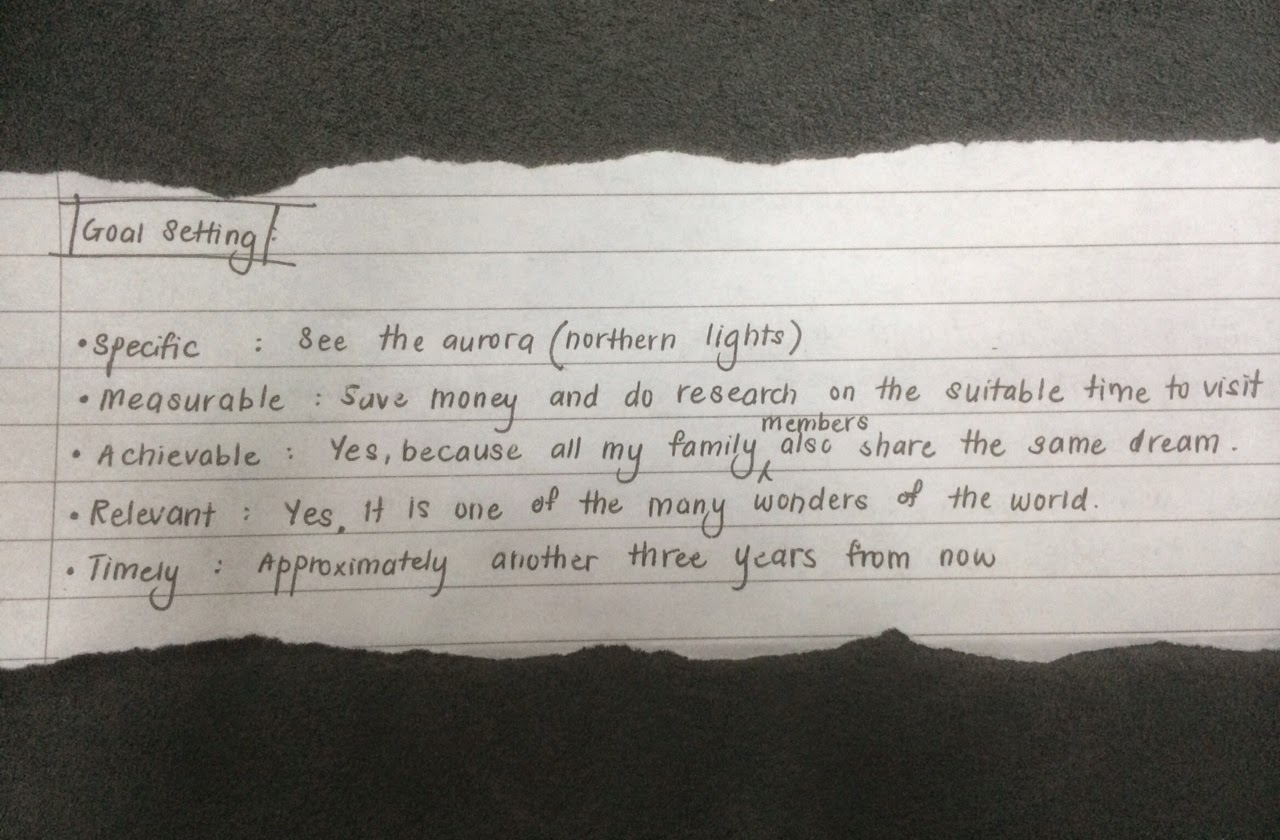 Goal Setting:
• Specific : See the aurora (northern lights)
• Measurable : Save money and do research on the suitable time to visit
• Achievable : Yes, because all my family members also share the same dream.
• Relevant : Yes. It is one of the many wonders of the world.
• Timely : Approximately another three years from now